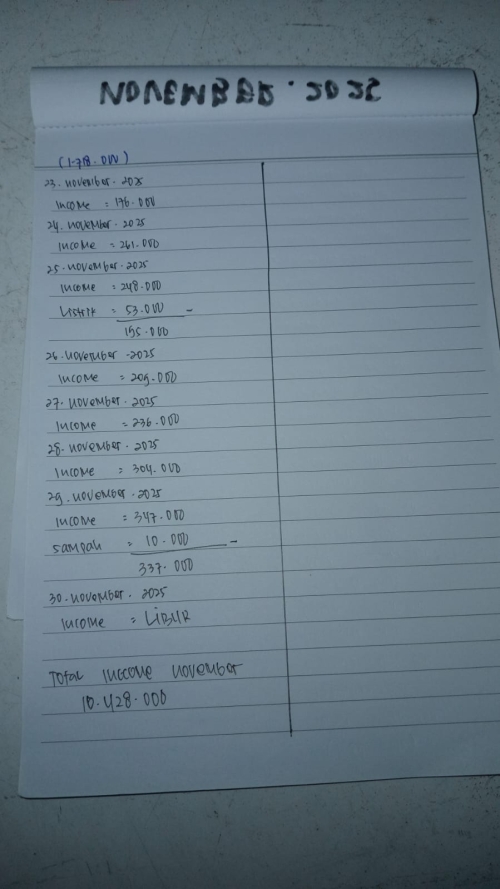 NOVEMBER . 2025
(1.718.000)
23. november. 2025
Income = 176.000
24. november. 2025
Income = 261.000
25. november. 2025
Income = 248.000
Listrik = 53.000 -
195.000
26. november -2025
Income = 205.000
27. november. 2025
Income = 236.000
28. november. 2025
Income = 304.000
29. november. 2025
Income = 347.000
sampah = 10.000 -
337.000
30. november. 2025
Income = LIBUR
TOTAL INCOME november
10.428.000